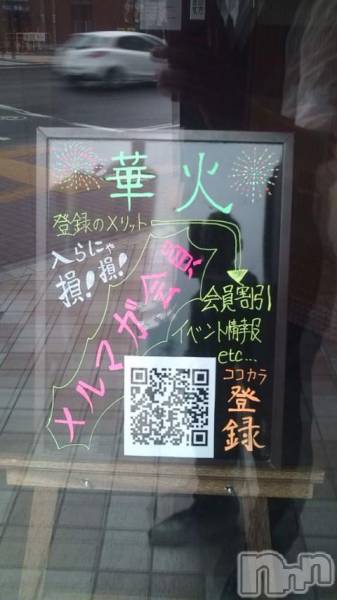 華火
登録のメリット
入らにゃ
損!損!
メルマガ会員
会員割引
イベント情報
etc...
ココカラ
登録
nnn